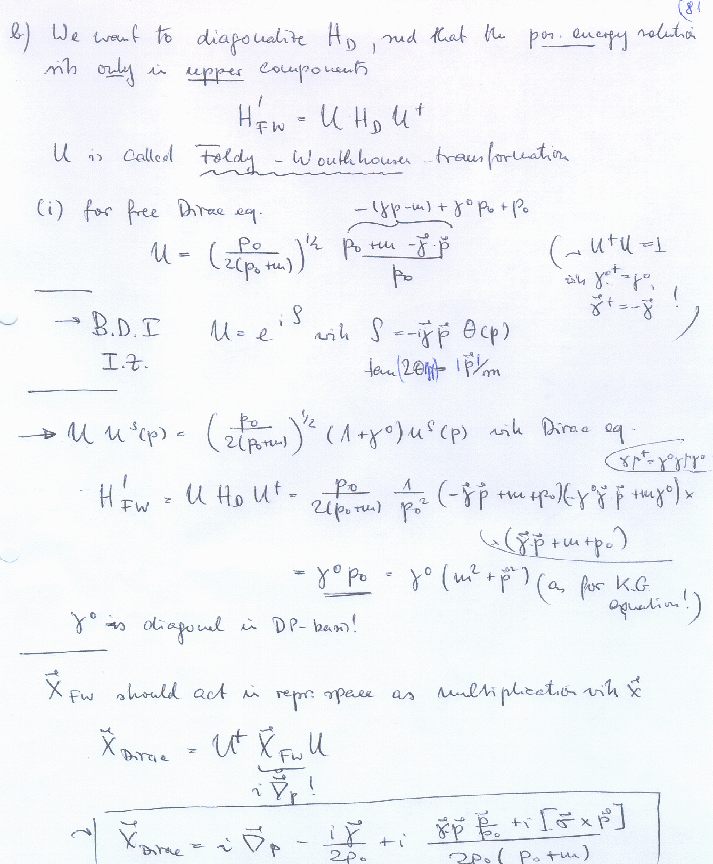 (81
b) We want to diagonalize H_D, such that the pos. energy solution
sits only in upper components
H'_FW = U H_D U†
U is called Foldy-Wouthhousen transformation
(i) for free Dirac eq.   -(γp-m) + γ⁰p₀ + p₀
U = (p₀ / 2(p₀+m))^{1/2} (p₀ + m - γ⃗·p⃗) / p₀   (→ U†U = 1
with γ⁰† = γ⁰,
γ⃗† = -γ⃗ ! )
→ B.D. I   U = e^{iS} with S = -iγ⃗p⃗ θ(p)
I.Z.   tan(2θ(p)) = |p⃗|/m
→ U u^s(p) = (p₀ / 2(p₀+m))^{1/2} (1+γ⁰) u^s(p) with Dirac eq.
γp† = γ⁰γpγ⁰
H'_FW = U H_D U† = p₀ / 2(p₀+m) 1/p₀² (-γ⃗p⃗ + m + p₀)(-γ⁰γ⃗p⃗ + mγ⁰) ×
(γ⃗·p⃗ + m + p₀)
= γ⁰p₀ = γ⁰(m² + p⃗²) (as for K.G
equation!)
γ⁰ is diagonal in DP-basis!
X⃗_FW should act in repr. space as multiplication with x⃗
X⃗_Dirac = U† X⃗_FW U
i∇⃗_p !
→ X⃗_Dirac = i∇⃗_p - iγ⃗ / 2p₀ + i (γ⃗p⃗ p⃗/p₀ + i[σ⃗ × p⃗]) / 2p₀(p₀+m)